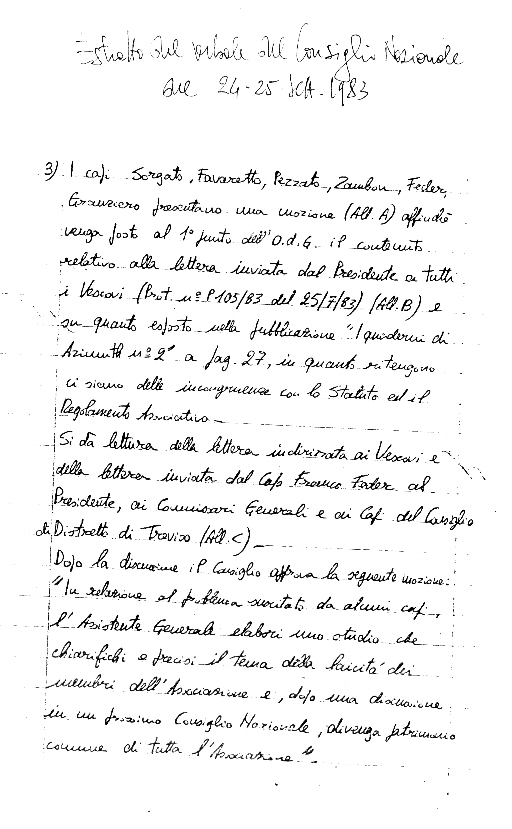 Estratto del verbale del Consiglio Nazionale
del 24-25 SET. 1983
3) I capi Sorgato, Favaretto, Pezzato, Zambon, Feder,
Granziero presentano una mozione (All. A) affinché
venga posto al 1° punto dell'O.d.G. il contenuto
relativo alla lettera inviata dal Presidente a tutti
i Vescovi (Prot. n° P105/83 del 25/7/83) (All. B) e
su quanto esposto nella pubblicazione "I quaderni di
Azimuth n° 2" a pag. 27, in quanto ritengono
ci siano delle incongruenze con lo Statuto ed il
Regolamento Associativo.
Si dà lettura della lettera indirizzata ai Vescovi e
della lettera inviata dal Capo Franco Feder al
Presidente, ai Commissari Generali e ai Capi del Consiglio
di Distretto di Treviso (All. C)_
Dopo la discussione il Consiglio approva la seguente mozione:
"In relazione al problema suscitato da alcuni capi,
l'Assistente Generale elabori uno studio che
chiarifichi e precisi il tema della laicità dei
membri dell'Associazione e, dopo una discussione
in un prossimo Consiglio Nazionale, divenga patrimonio
comune di tutta l'Associazione".